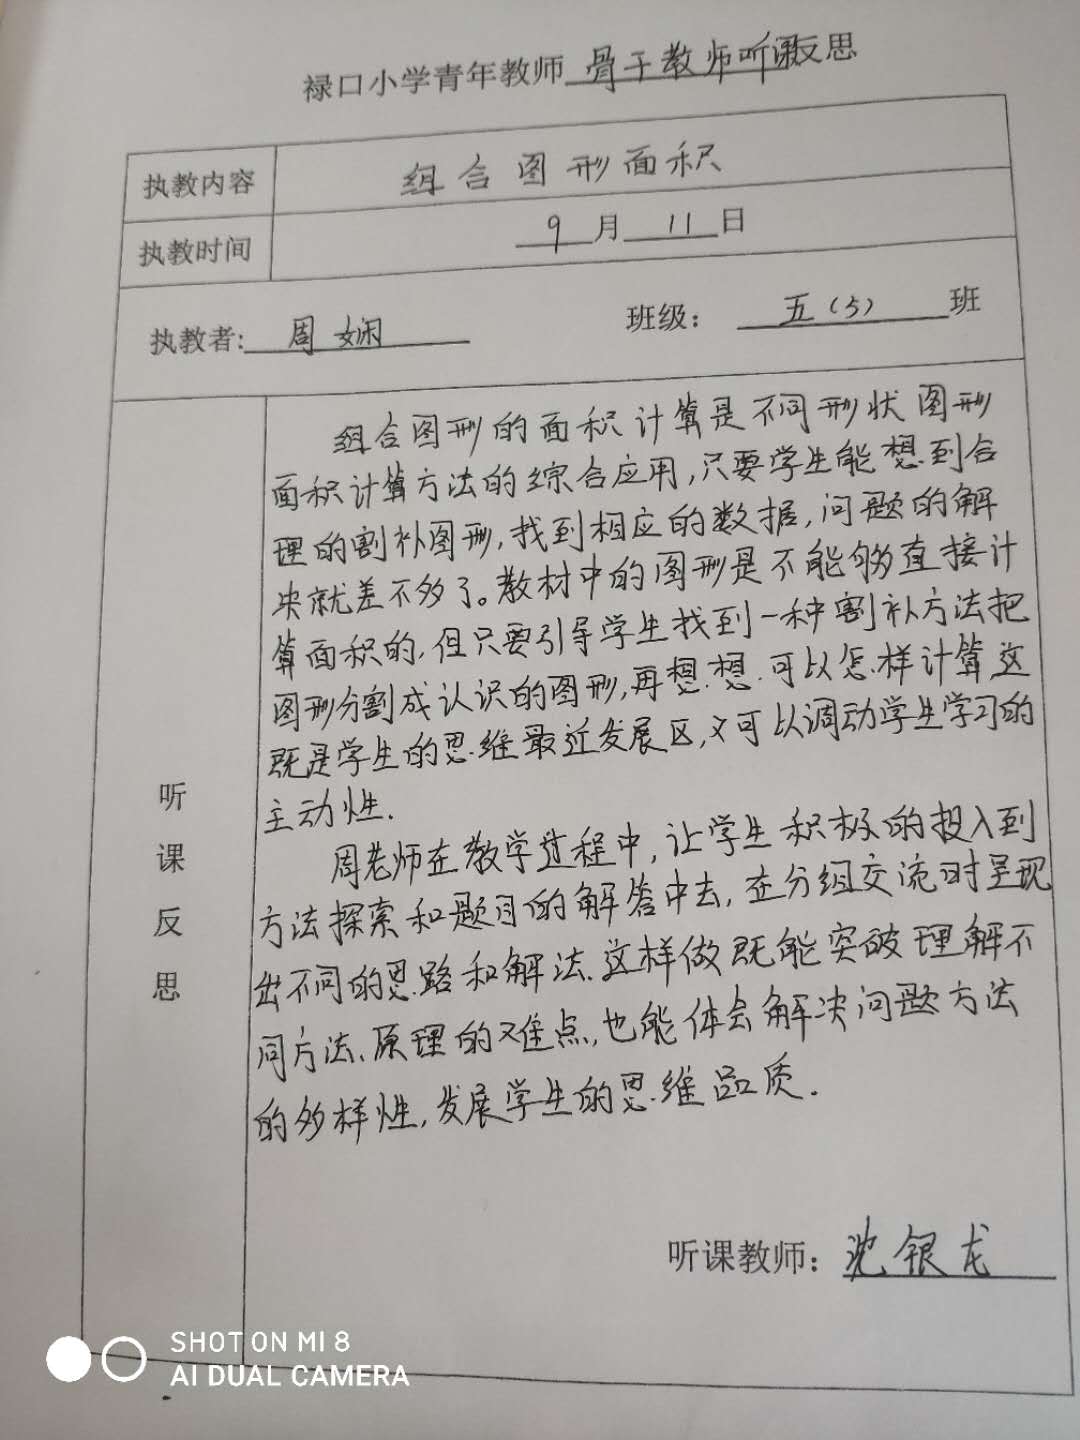 禄口小学青年教师骨干教师听课反思
执教内容
组合图形面积
执教时间
9月11日
执教者:周娴
班级: 五(5)班
听课反思
组合图形的面积计算是不同形状图形
面积计算方法的综合应用,只要学生能想到合
理的割补图形,找到相应的数据,问题的解
决就差不多了。教材中的图形是不能够直接计
算面积的,但只要引导学生找到一种割补方法把
图形分割成认识的图形,再想想可以怎样计算这
既是学生的思维最近发展区,又可以调动学生学习的
主动性.
周老师在教学过程中,让学生积极的投入到
方法探索和题目的解答中去,在分组交流时呈现
出不同的思路和解法.这样做既能突破理解不
同方法、原理的难点,也能体会解决问题方法
的多样性,发展学生的思维品质.
听课教师:沈银龙
SHOT ON MI 8
AI DUAL CAMERA